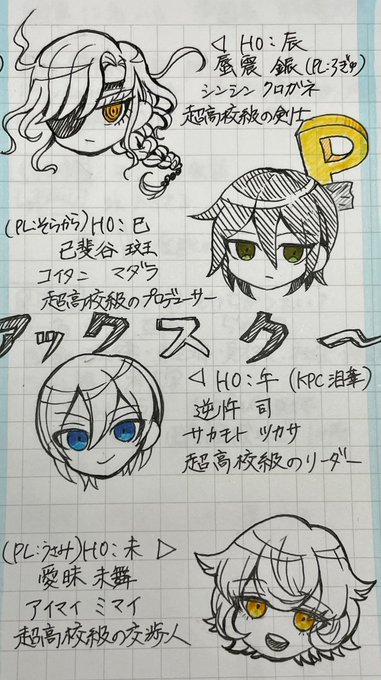 ◁ HO:辰
蜃震 鋠 (PL:ろぎゅ)
シンシン クロガネ
超高校級の剣士
P
(PL:そらから) HO:巳
己斐谷 斑
コイタニ マダラ
超高校級のプロデューサー
アックスクー〜
◁ HO:午 (KPC 泪華)
逆許 司
サカモト ツカサ
超高校級のリーダー
(PL:うさみ) HO:未 ▷
愛昧 未舞
アイマイ ミマイ
超高校級の交渉人